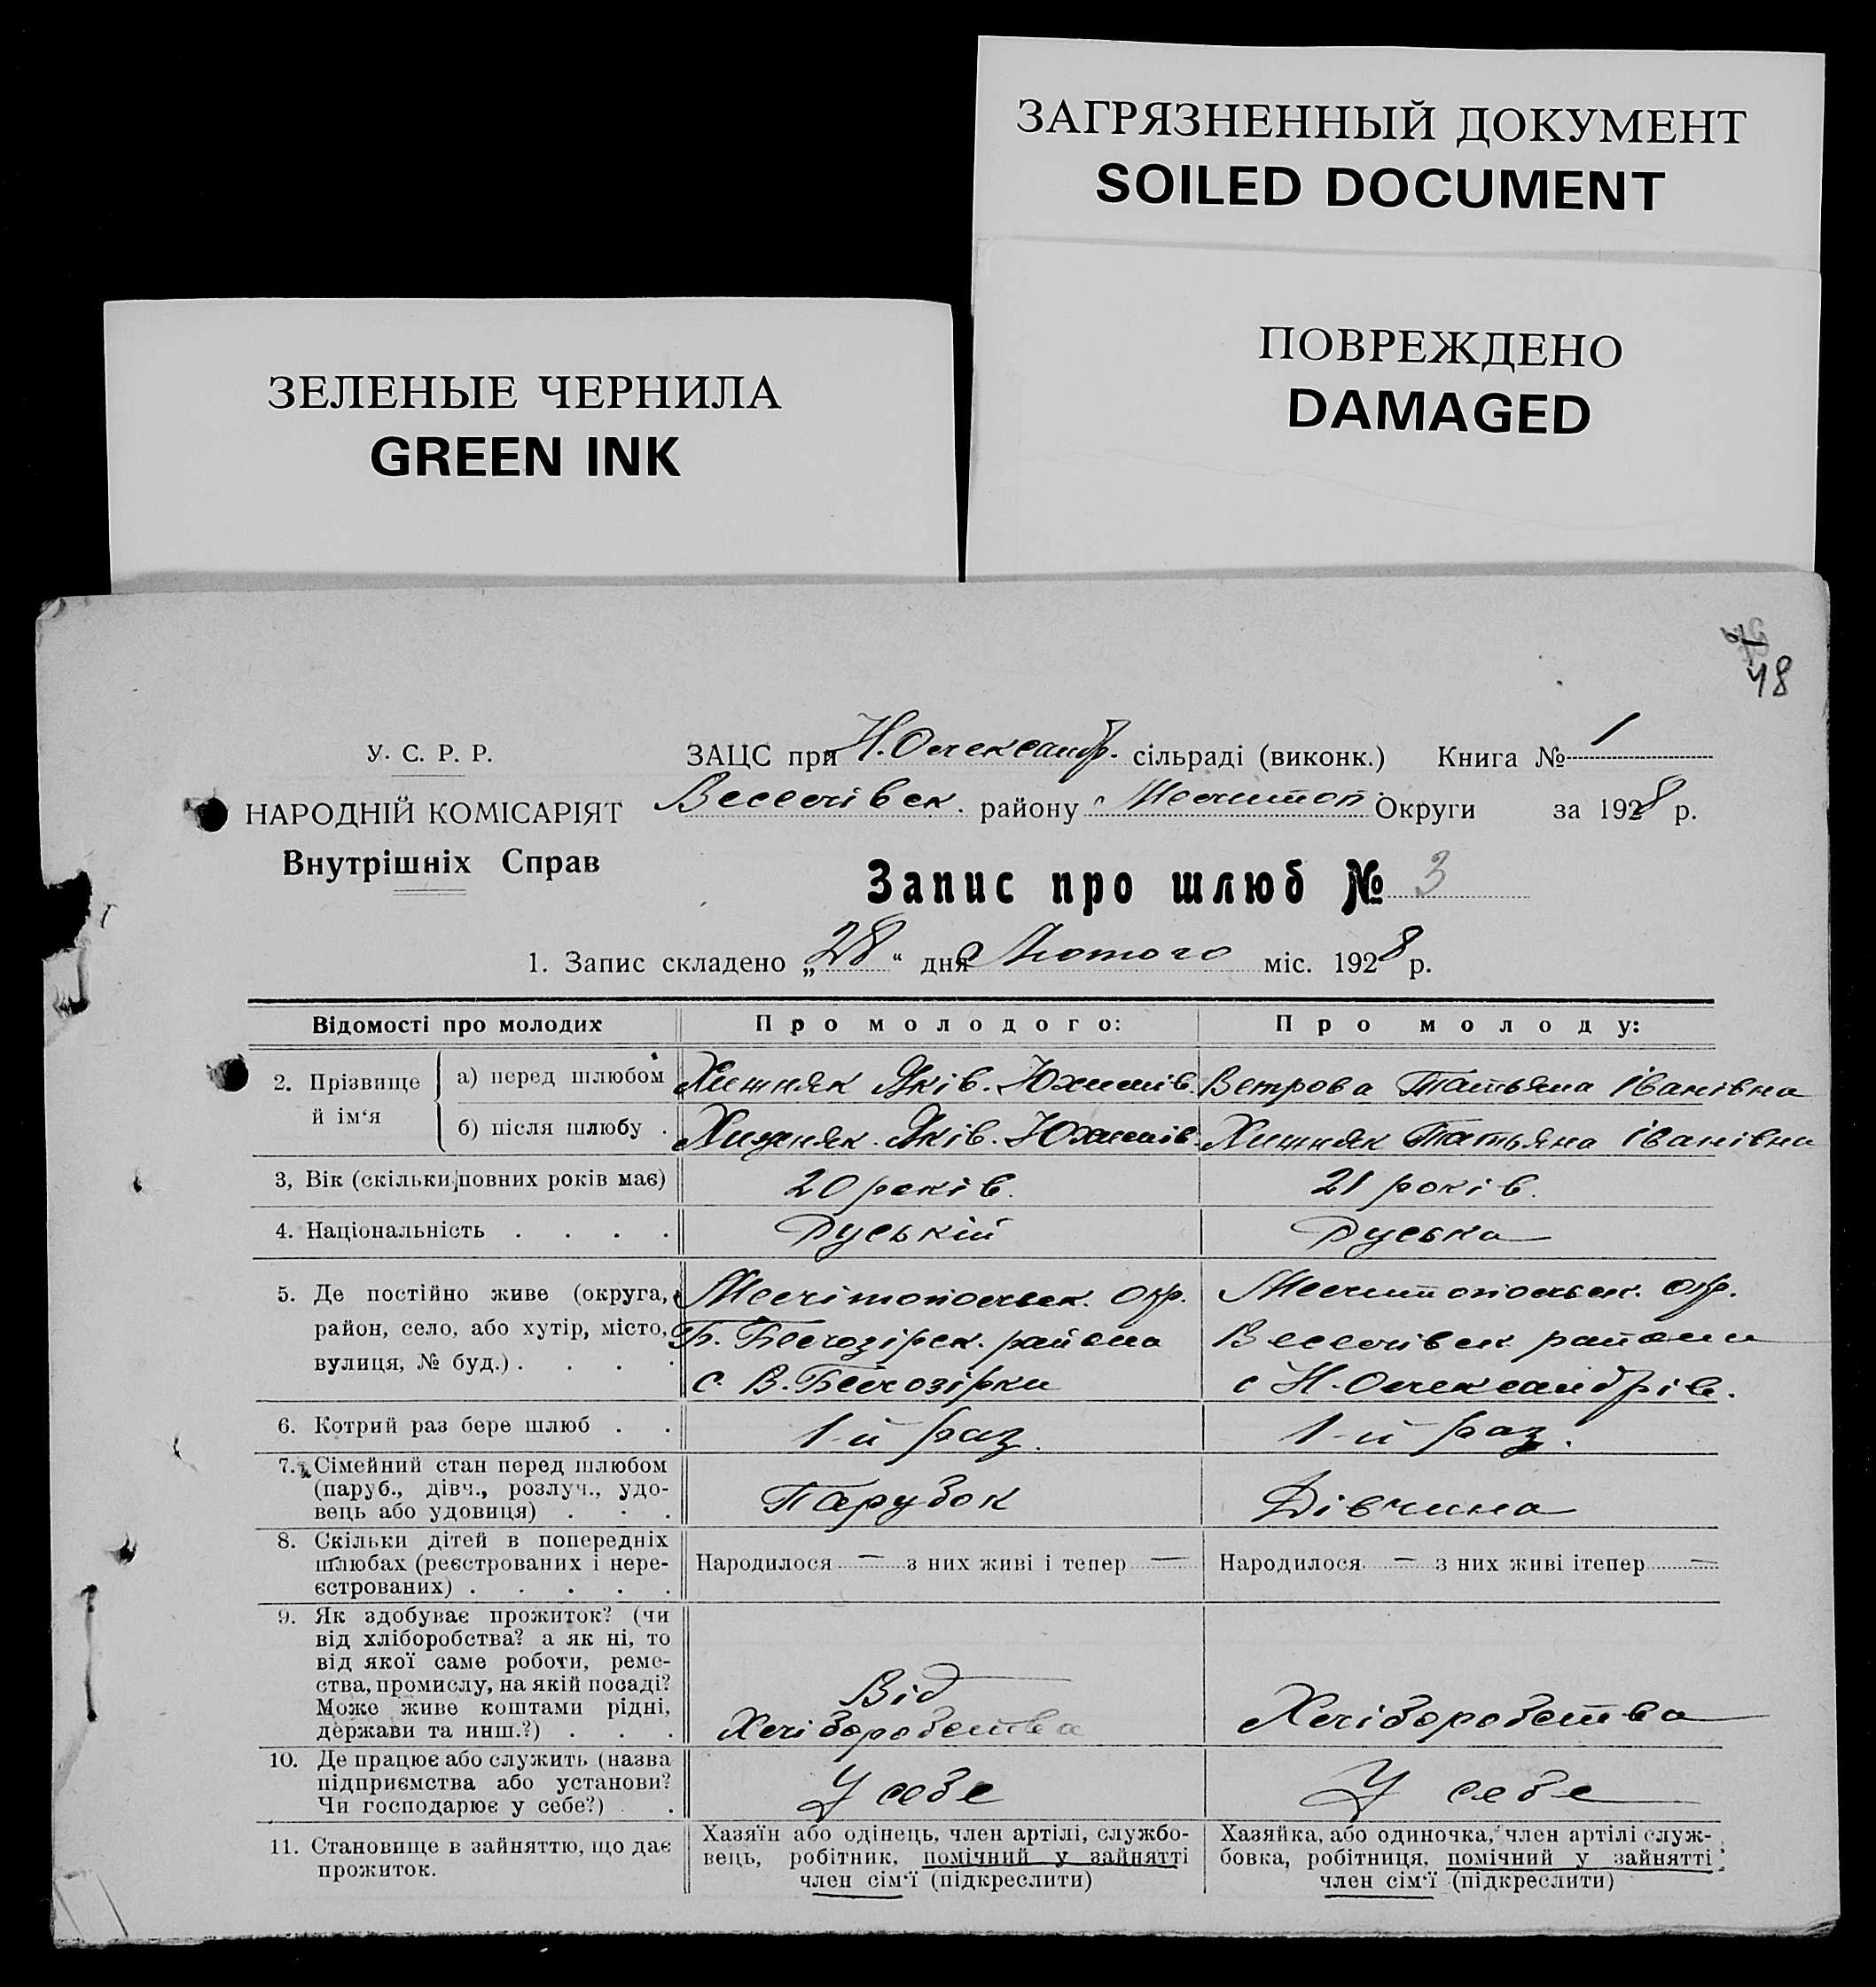 ЗАГРЯЗНЕННЫЙ ДОКУМЕНТ
SOILED DOCUMENT
ПОВРЕЖДЕНО
DAMAGED
ЗЕЛЕНЫЕ ЧЕРНИЛА
GREEN INK
48
У. С. Р. Р.
ЗАЦС при Н. Олександр. сільраді (виконк.) Книга № 1
НАРОДНІЙ КОМІСАРІЯТ
Веселівск. району Мелитоп. Округи за 1928 р.
Внутрішніх Справ
Запис про шлюб № 3
1. Запис складено „28“ дня Лютого міс. 1928 р.
Відомості про молодих
Про молодого:
Про молоду:
2. Прізвище й ім‘я
а) перед шлюбом
Хижняк Яків. Юхимів.
Ветрова Татьяна Іванівна
б) після шлюбу .
Хижняк. Яків. Юхимів.
Хижняк Татьяна Іванівна
3, Вік (скільки повних років має)
20 років.
21 років.
4. Національність . . . .
Руській
Руська
5. Де постійно живе (округа,
район, село, або хутір, місто,
вулиця, № буд.) . . . .
Мелітопольск. Окр.
Б. Білозірск. района
с. В. Білозірки
Мелитопольск. окр.
Веселівск района
с Н. Олександрів.
6. Котрий раз бере шлюб . .
1-й раз.
1-й раз.
7. Сімейний стан перед шлюбом
(паруб., дівч., розлуч., удо-
вець або удовиця) . . .
Парубок
Дівчина
8. Скільки дітей в попередніх
шлюбах (реєстрованих і нере-
єстрованих) . . . . .
Народилося — з них живі і тепер —
Народилося — з них живі ітепер —
9. Як здобуває прожиток? (чи
від хліборобства? а як ні, то
від якої саме роботи, реме-
ства, промислу, на якій посаді?
Може живе коштами рідні,
держави та инш.?) . . .
Від
Хліборобства
Хліборобства
10. Де працює або служить (назва
підприємства або установи?
Чи господарює у себе?) . .
У себе
У себе
11. Становище в зайняттю, що дає
прожиток.
Хазяїн або одінець, член артілі, службо-
вець, робітник, помічний у зайнятті
член сім‘ї (підкреслити)
Хазяйка, або одиночка, член артілі служ-
бовка, робітниця, помічний у зайнятті
член сім‘ї (підкреслити)